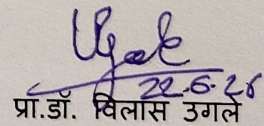 22.6.26
प्रा.डॉ. विलास उगले